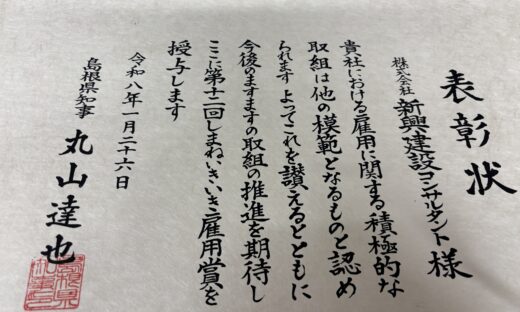 表彰状
株式会社 新興建設コンサルタント 様
貴社における雇用に関する積極的な
取組は他の模範となるものと認め
られます よってこれを讃えるとともに
今後のますますの取組の推進を期待し
ここに第十二回しまねいきいき雇用賞を
授与します
令和八年一月二十六日
島根県知事 丸山達也